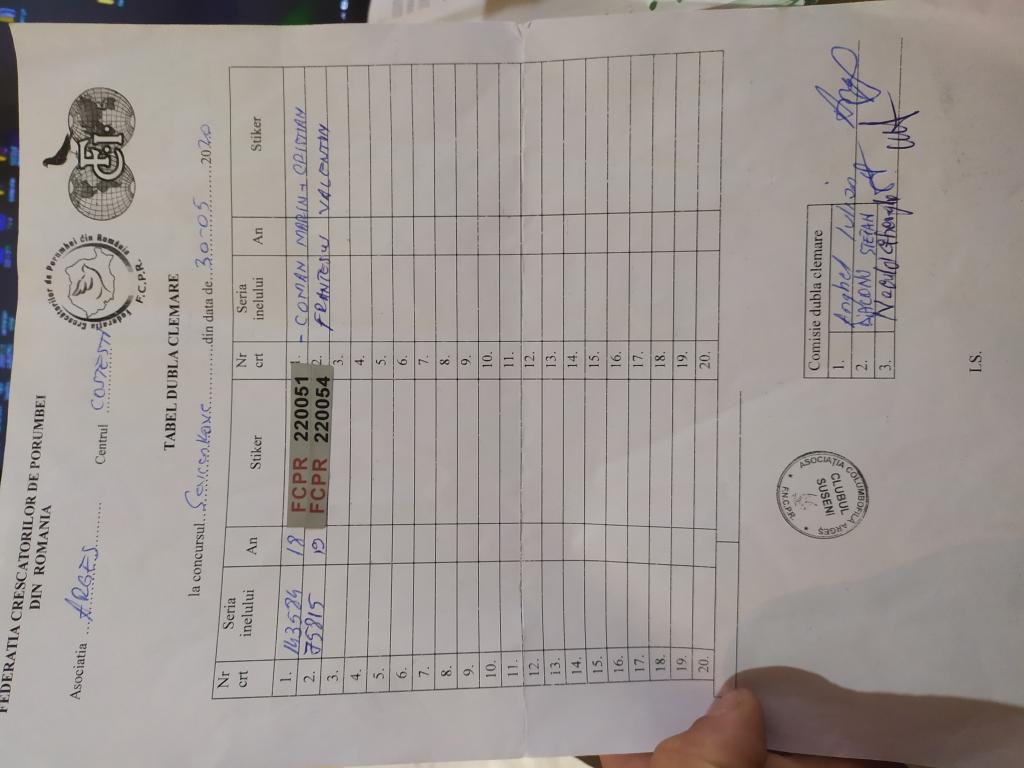 FEDERATIA CRESCATORILOR DE PORUMBEI
DIN ROMANIA
Federația Crescătorilor de Porumbei din România
F.C.P.R.
FCI
Asociatia ...ARGES............ Centrul COSTESTI
TABEL DUBLA CLEMARE
la concursul.....................din data de...30-05..........2020
Nr crt Seria inelului An Stiker Nr crt Seria inelului An Stiker
1. 143584 18 FCPR 220051 1. - COMAN MARIN + CRISTIAN
2. 75815 19 FCPR 220054 2. VALENTIN
3. 3.
4. 4.
5. 5.
6. 6.
7. 7.
8. 8.
9. 9.
10. 10.
11. 11.
12. 12.
13. 13.
14. 14.
15. 15.
16. 16.
17. 17.
18. 18.
19. 19.
20. 20.
Comisie dubla clemare
1. Anghel
2. STEFAN
3.
ASOCIAȚIA COLUMBOFILA ARGEȘ
CLUBUL
SUSENI
I.S.